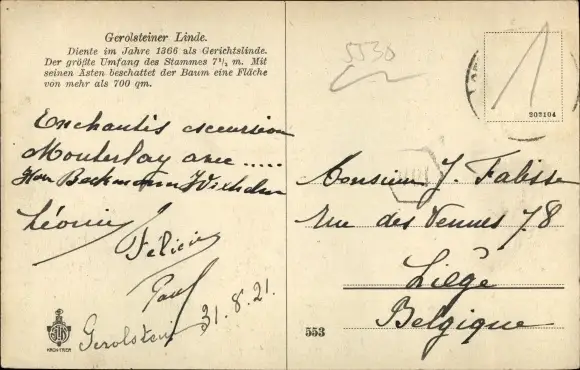 Gerolsteiner Linde.
Diente im Jahre 1366 als Gerichtslinde.
Der größte Umfang des Stammes 7½ m. Mit
seinen Ästen beschattet der Baum eine Fläche
von mehr als 700 qm.
Enchantés excursion
avec .....
Herr Beckmann
Léonie
Felicie
Paul
Gerolstein 31.8.21.
5530
202104
Monsieur J. Fabisse
Rue des Vennes 78
Liège
Belgique
553